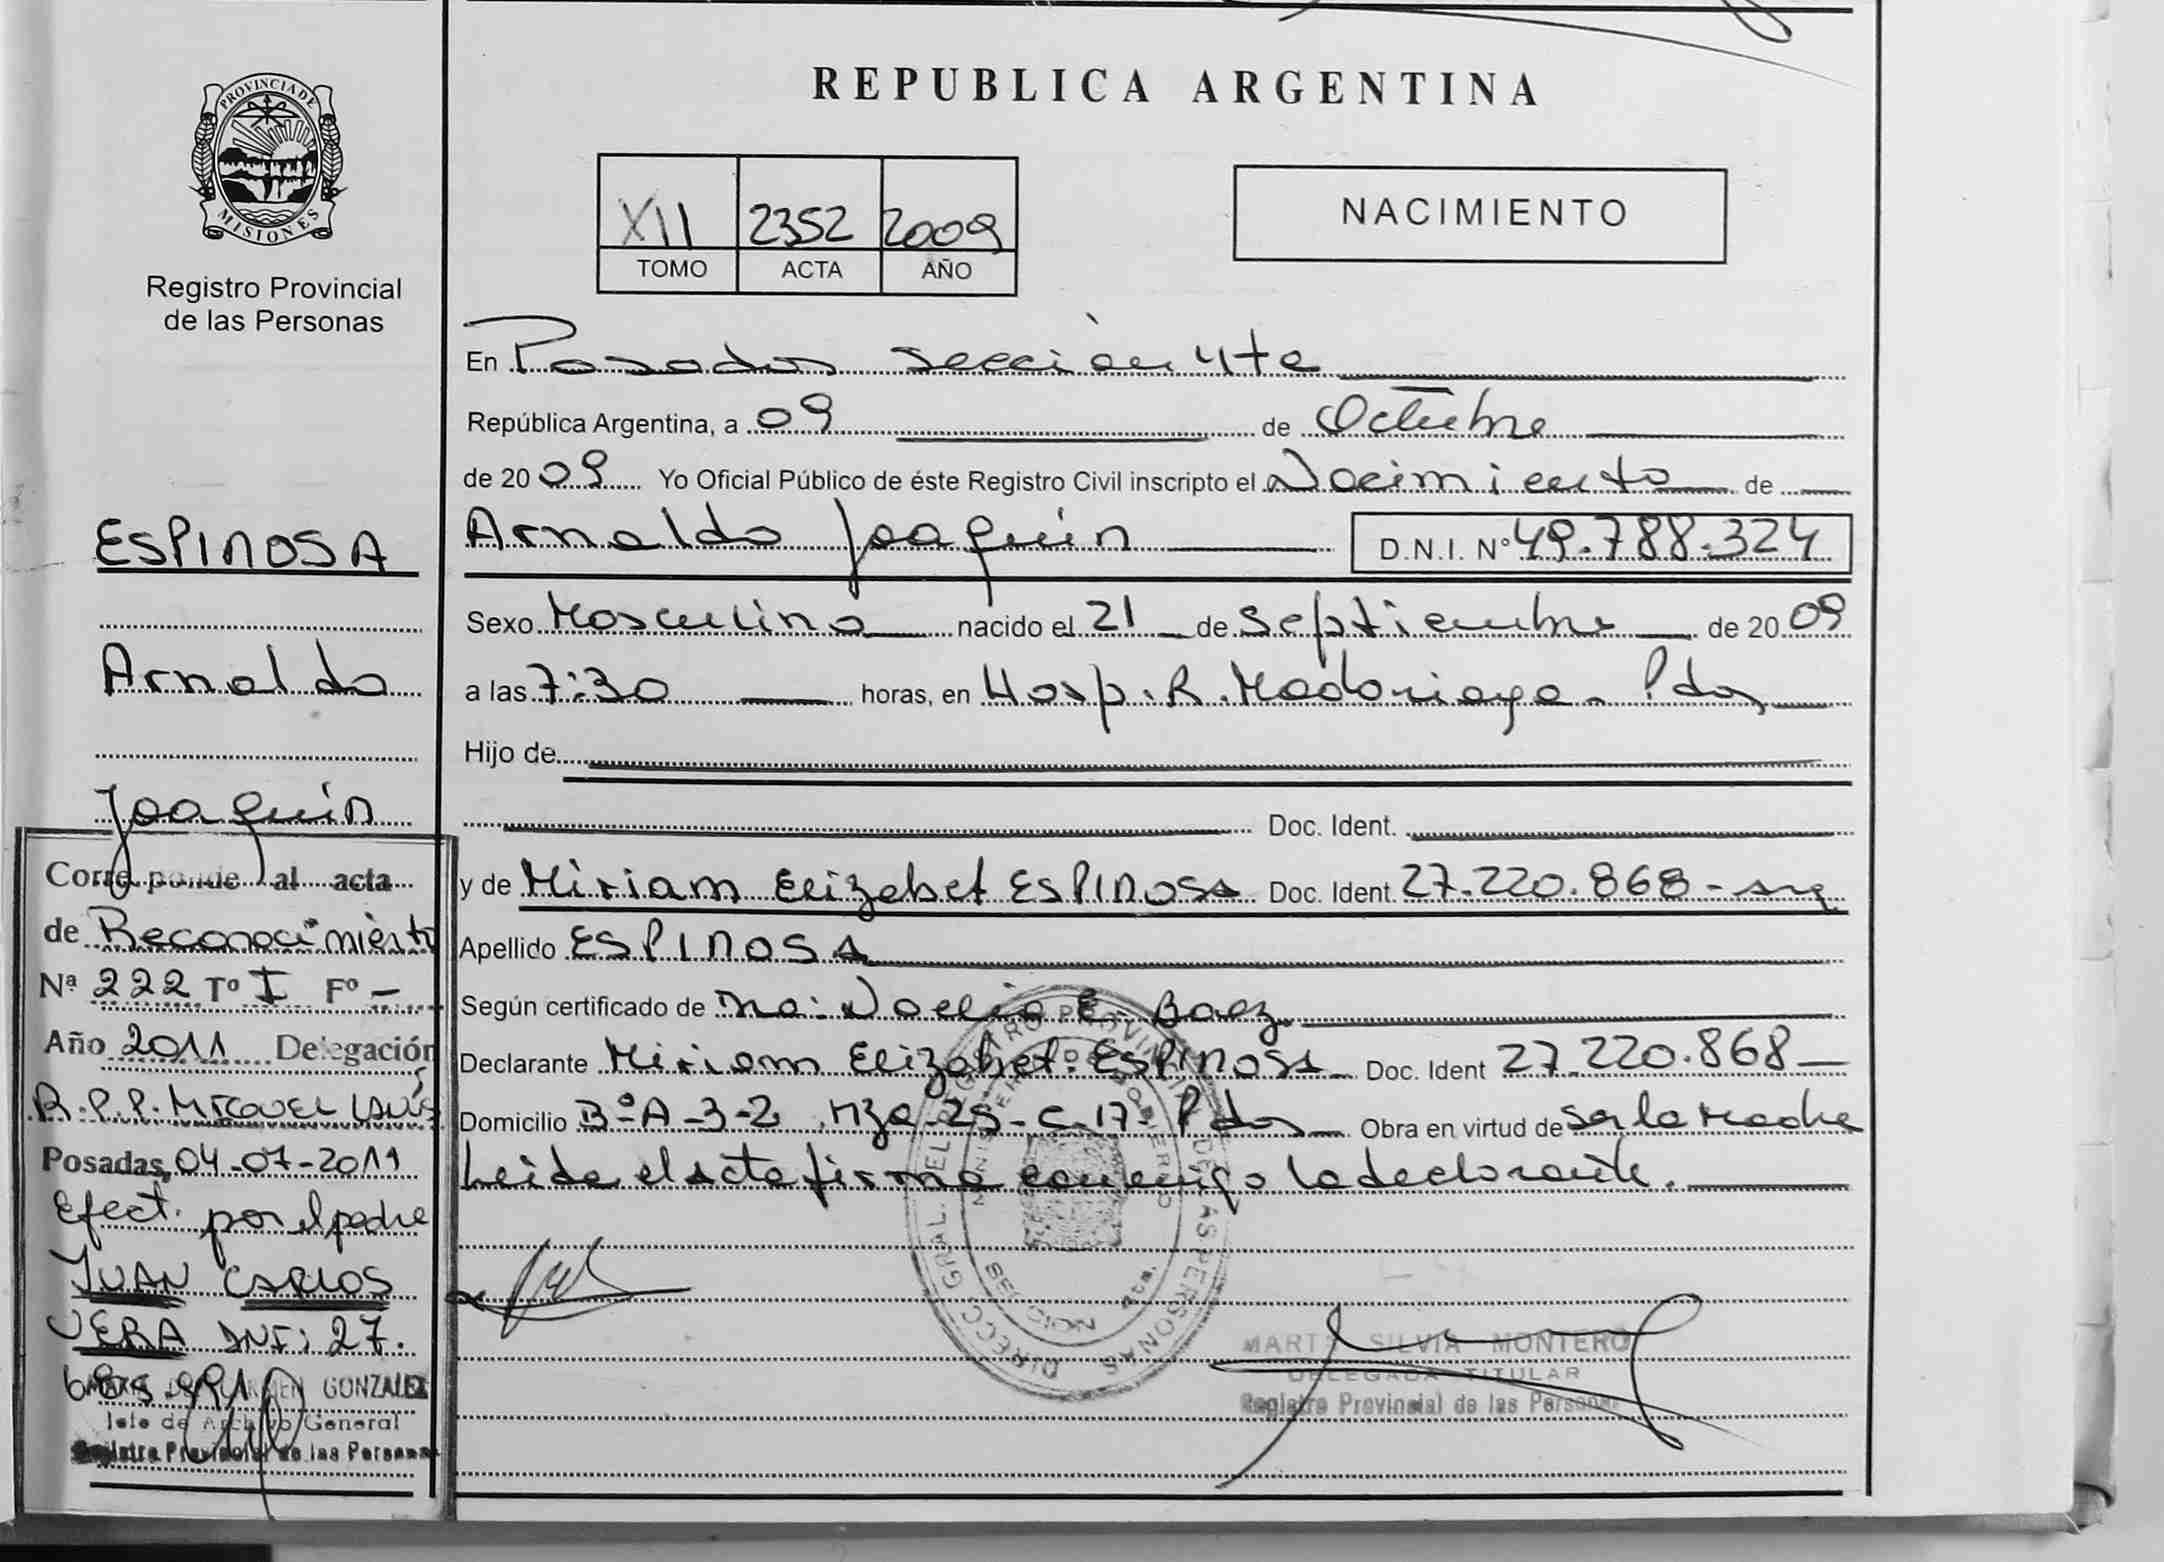 PROVINCIA DE
MISIONES
Registro Provincial
de las Personas
ESPINOSA
Arnaldo
Joaquín
Corresponde al acta
de Reconocimiento
Nª 222 Tº I Fº -
Año 2011 Delegación
R.P.P. MIGUEL LANÚS
Posadas, 04-07-2011
Efect. por el padre
JUAN CARLOS
VERA DNI: 27.
GONZALEZ
Jefe de Archivo General
Registro Provincial de las Personas
REPUBLICA ARGENTINA
XII 2352 2009
TOMO ACTA AÑO
NACIMIENTO
En Posadas sección 4ta
República Argentina, a 09 de Octubre
de 2009 Yo Oficial Público de éste Registro Civil inscripto el Nacimiento de
Arnaldo Joaquín D.N.I. Nº 49.788.324
Sexo Masculino nacido el 21 de Septiembre de 2009
a las 7:30 horas, en Hosp. R. Madariaga - Pdas
Hijo de
Doc. Ident.
y de Miriam Elizabet ESPINOSA Doc. Ident. 27.220.868 - arg
Apellido ESPINOSA
Según certificado de Noelia E. Baez
Declarante Miriam Elizabet ESPINOSA Doc. Ident 27.220.868
Domicilio Bº A-3-2 Mza 25 - C. 17 - Pdas Obra en virtud de ser la Madre
Leida el acta firma conmigo la declarante.
MARTA SILVIA MONTERO
DELEGADA TITULAR
Registro Provincial de las Personas